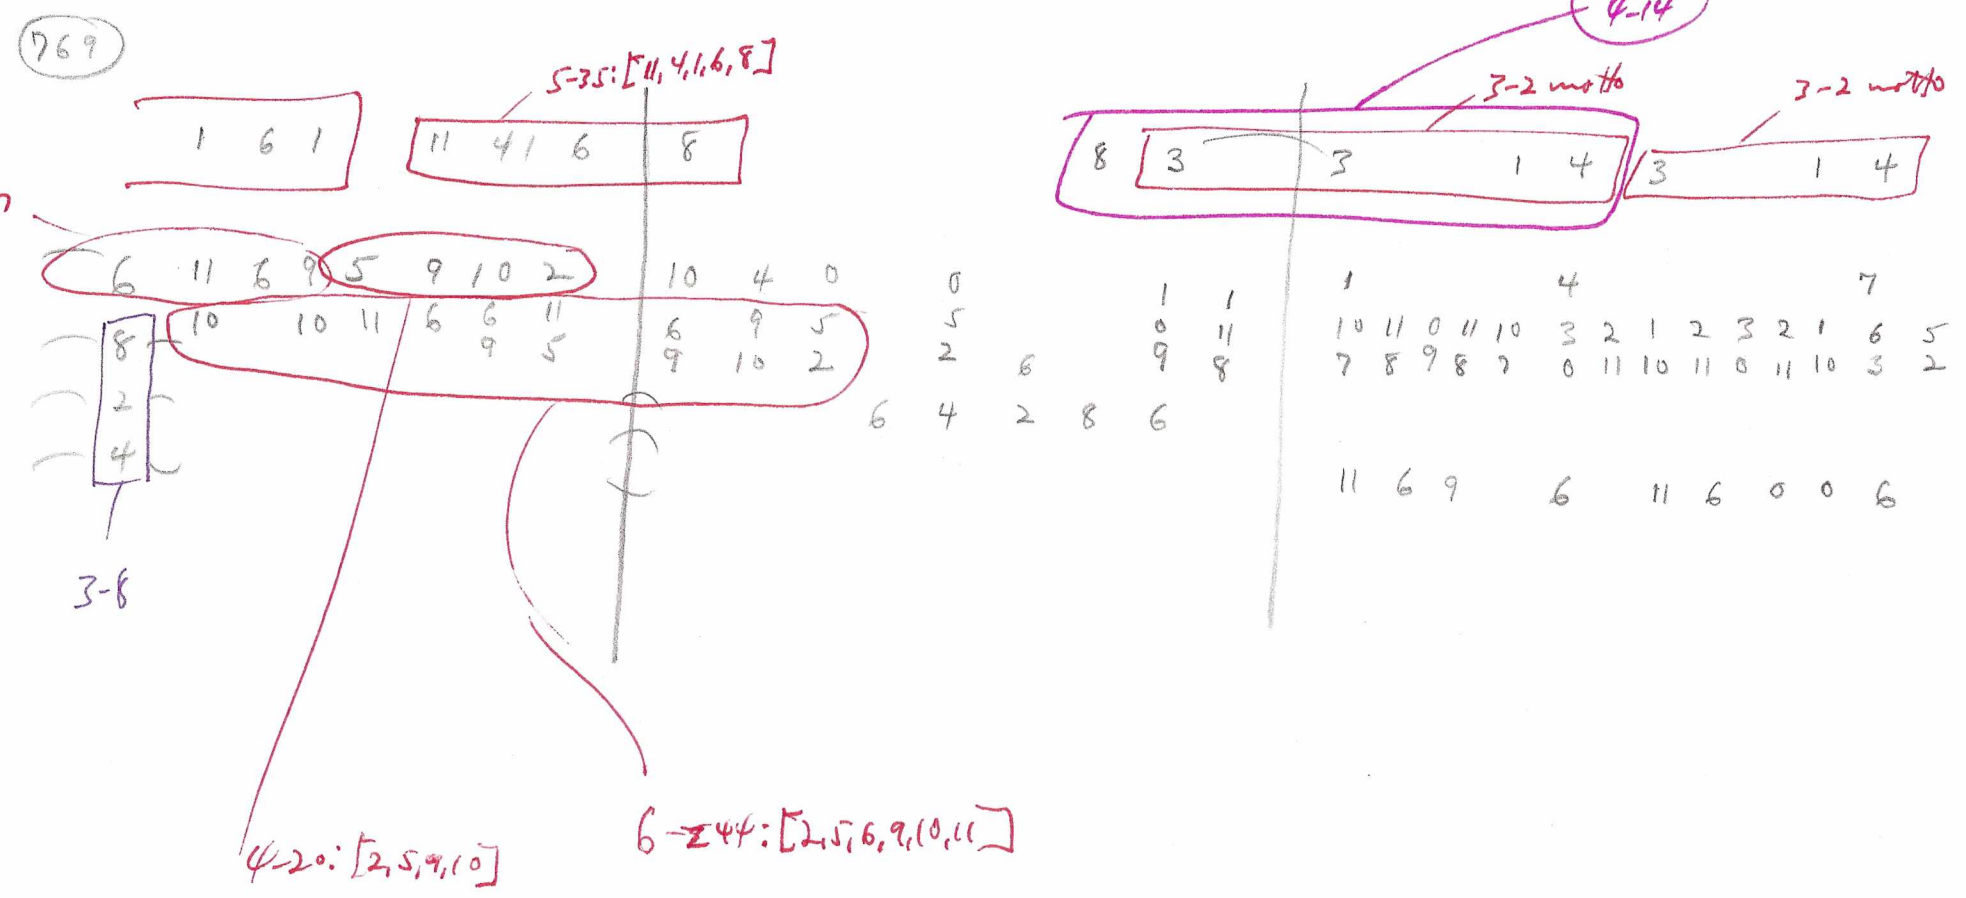 769
4-14
5-35:[11,4,1,6,8]
3-2 motto
3-2 motto
1 6 1 11 4 1 6 8
8 3 3 1 4 3 1 4
6 11 6 9 5 9 10 2 10 4 0 0
1 1 1 4 7
8 10 10 11 6 6 11 6 9 5 5 0 11 10 11 0 11 10 3 2 1 2 3 2 1 6 5
9 5 9 10 2 2 6 9 8 7 8 9 8 7 0 11 10 11 0 11 10 3 2
2 6 4 2 8 6
4
11 6 9 6 11 6 0 0 6
3-8
6-z44:[2,5,6,9,10,11]
4-20:[2,5,9,10]